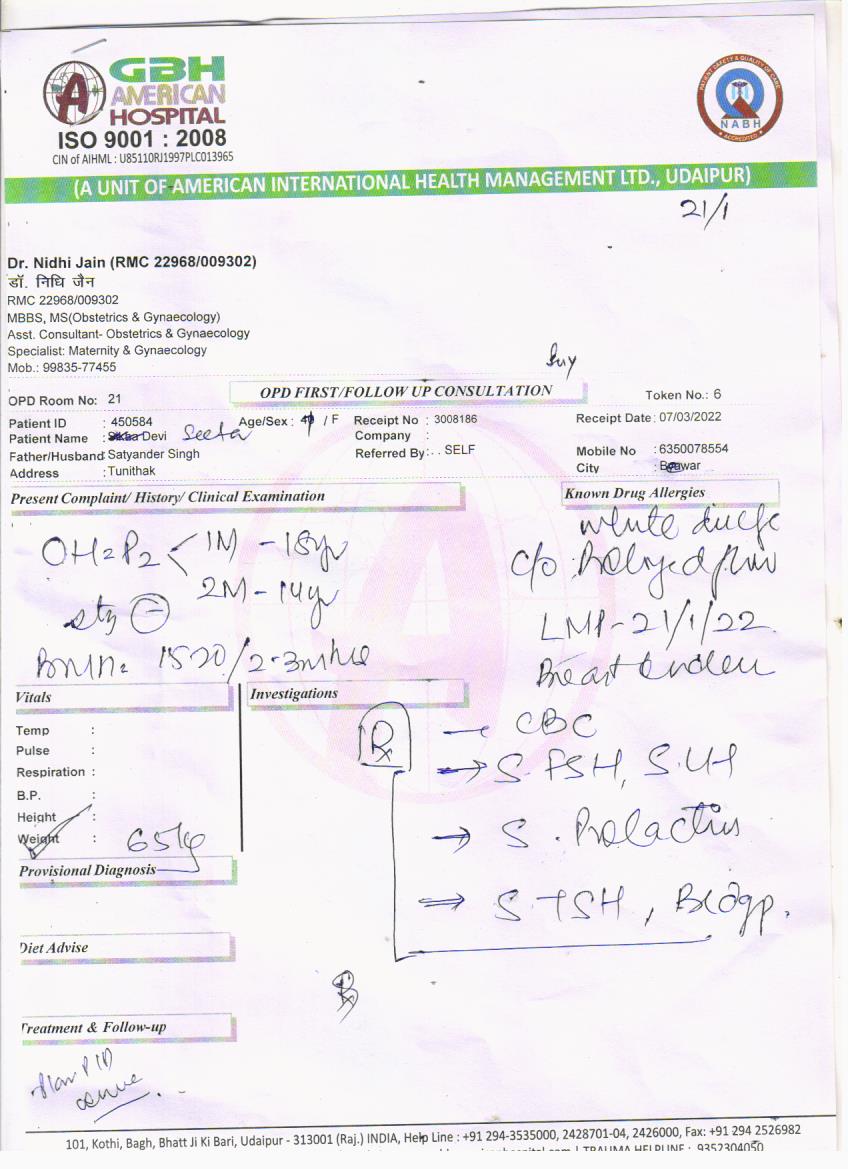 GBH
AMERICAN
HOSPITAL
ISO 9001 : 2008
CIN of AIHML : U85110RJ1997PLC013965
PATIENT SAFETY & QUALITY OF CARE
NABH
ACCREDITED
(A UNIT OF AMERICAN INTERNATIONAL HEALTH MANAGEMENT LTD., UDAIPUR)
21/1
Dr. Nidhi Jain (RMC 22968/009302)
डॉ. निधि जैन
RMC 22968/009302
MBBS, MS(Obstetrics & Gynaecology)
Asst. Consultant- Obstetrics & Gynaecology
Specialist: Maternity & Gynaecology
Mob.: 99835-77455
OPD Room No: 21 OPD FIRST/FOLLOW UP CONSULTATION Token No.: 6
Patient ID : 450584 Age/Sex : / F Receipt No : 3008186 Receipt Date: 07/03/2022
Patient Name : Devi Seeta Company :
Father/Husband: Satyander Singh Referred By: . . SELF Mobile No : 6350078554
Address : Tunithak City :
Present Complaint/ History/ Clinical Examination Known Drug Allergies
white
OH=P2 < 1M - 18yr c/o
2M - 14yr
LMP - 21/1/22
Breast
Vitals Investigations
Temp :
Pulse :
Respiration :
B.P. :
Height :
Weight : 65kg
Rx
- CBC
→ S. FSH, S. LH
→ S. Prolactin
→ S. TSH, Bldgp.
Provisional Diagnosis
Diet Advise
Treatment & Follow-up
101, Kothi, Bagh, Bhatt Ji Ki Bari, Udaipur - 313001 (Raj.) INDIA, Help Line : +91 294-3535000, 2428701-04, 2426000, Fax: +91 294 2526982
TRAUMA HELPLINE : 9352304050